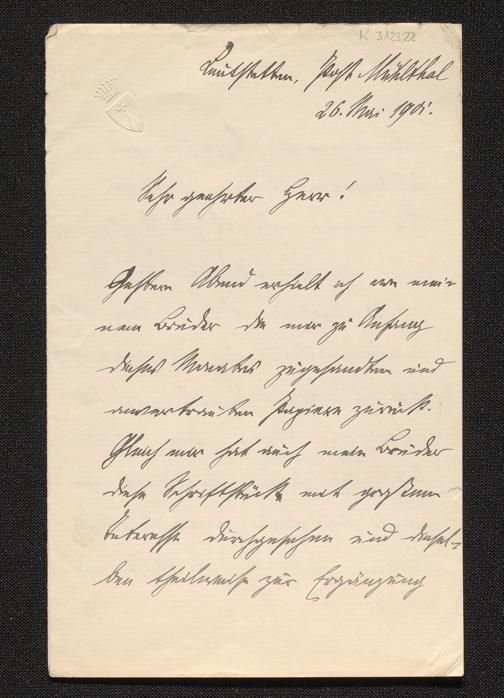 K 3123,22
Leutstetten, Post Mühlthal
26. Mai 1901.
Sehr geehrter Herr!
Gestern Abend erhielt ich von mei-
nem Bruder die mir zu Anfang
dieses Monates zugesandten und
anvertrauten Papiere zurück.
Gleich mir hat auch mein Bruder
diese Schriftstücke mit großem
Interesse durchgesehen und diesel-
ben theilweise zur Ergänzung